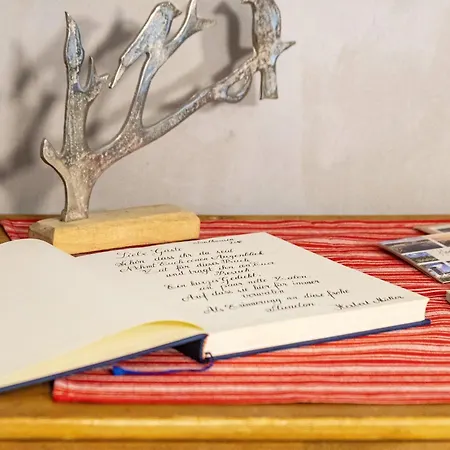 Liebe Gäste
Schön dass ihr da seid
Nehmt Euch einen Augenblick
Zeit für dieses Buch
und tragt ihn ein Euer
Besuch
Ein kurzes Gedicht
ein paar nette Zeilen
Auf dass sie hier für immer
verweilen
Als Erinnerung an diese frohe